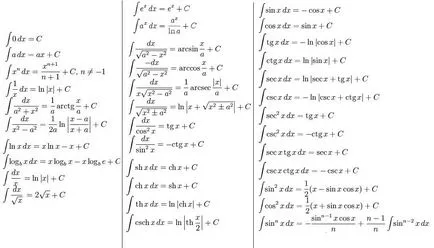 ∫0 dx = C
∫a dx = ax + C
∫xⁿ dx = xⁿ⁺¹/(n+1) + C, n ≠ −1
∫1/x dx = ln |x| + C
∫dx/(a² + x²) = 1/a arctg x/a + C
∫dx/(x² − a²) = 1/(2a) ln |(x − a)/(x + a)| + C
∫ln x dx = x ln x − x + C
∫log_b x dx = x log_b x − x log_b e + C
∫dx/x = ln |x| + C
∫dx/√x = 2√x + C
∫eˣ dx = eˣ + C
∫aˣ dx = aˣ/ln a + C
∫dx/√(a² − x²) = arcsin x/a + C
∫−dx/√(a² − x²) = arccos x/a + C
∫dx/(x√(x² − a²)) = 1/a arcsec |x|/a + C
∫dx/√(x² ± a²) = ln |x + √(x² ± a²)| + C
∫dx/cos² x = tg x + C
∫dx/sin² x = −ctg x + C
∫sh x dx = ch x + C
∫ch x dx = sh x + C
∫th x dx = ln |ch x| + C
∫csch x dx = ln |th x/2| + C
∫sin x dx = − cos x + C
∫cos x dx = sin x + C
∫tg x dx = − ln |cos x| + C
∫ctg x dx = ln |sin x| + C
∫sec x dx = ln |sec x + tg x| + C
∫csc x dx = − ln |csc x + ctg x| + C
∫sec² x dx = tg x + C
∫csc² x dx = −ctg x + C
∫sec x tg x dx = sec x + C
∫csc x ctg x dx = − csc x + C
∫sin² x dx = 1/2(x − sin x cos x) + C
∫cos² x dx = 1/2(x + sin x cos x) + C
∫sinⁿ x dx = − (sinⁿ⁻¹ x cos x)/n + (n−1)/n ∫sinⁿ⁻² x dx